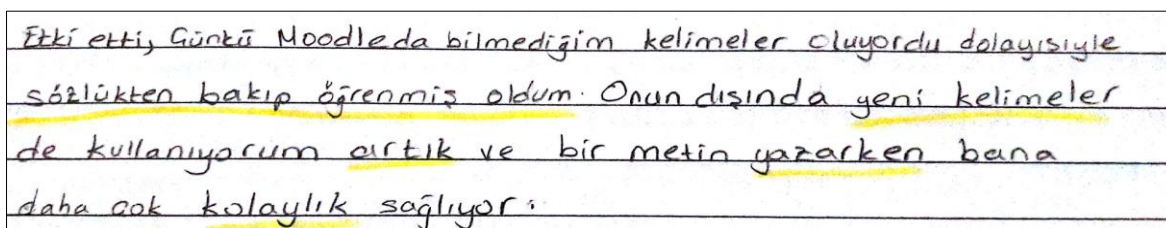 Etki etti, Günkü Moodleda bilmediğim kelimeler oluyordu dolayısıyle
sözlükten bakıp öğrenmiş oldum. Onun dışında yeni kelimeler
de kullanıyorum artık ve bir metin yazarken bana
daha çok kolaylık sağlıyor.